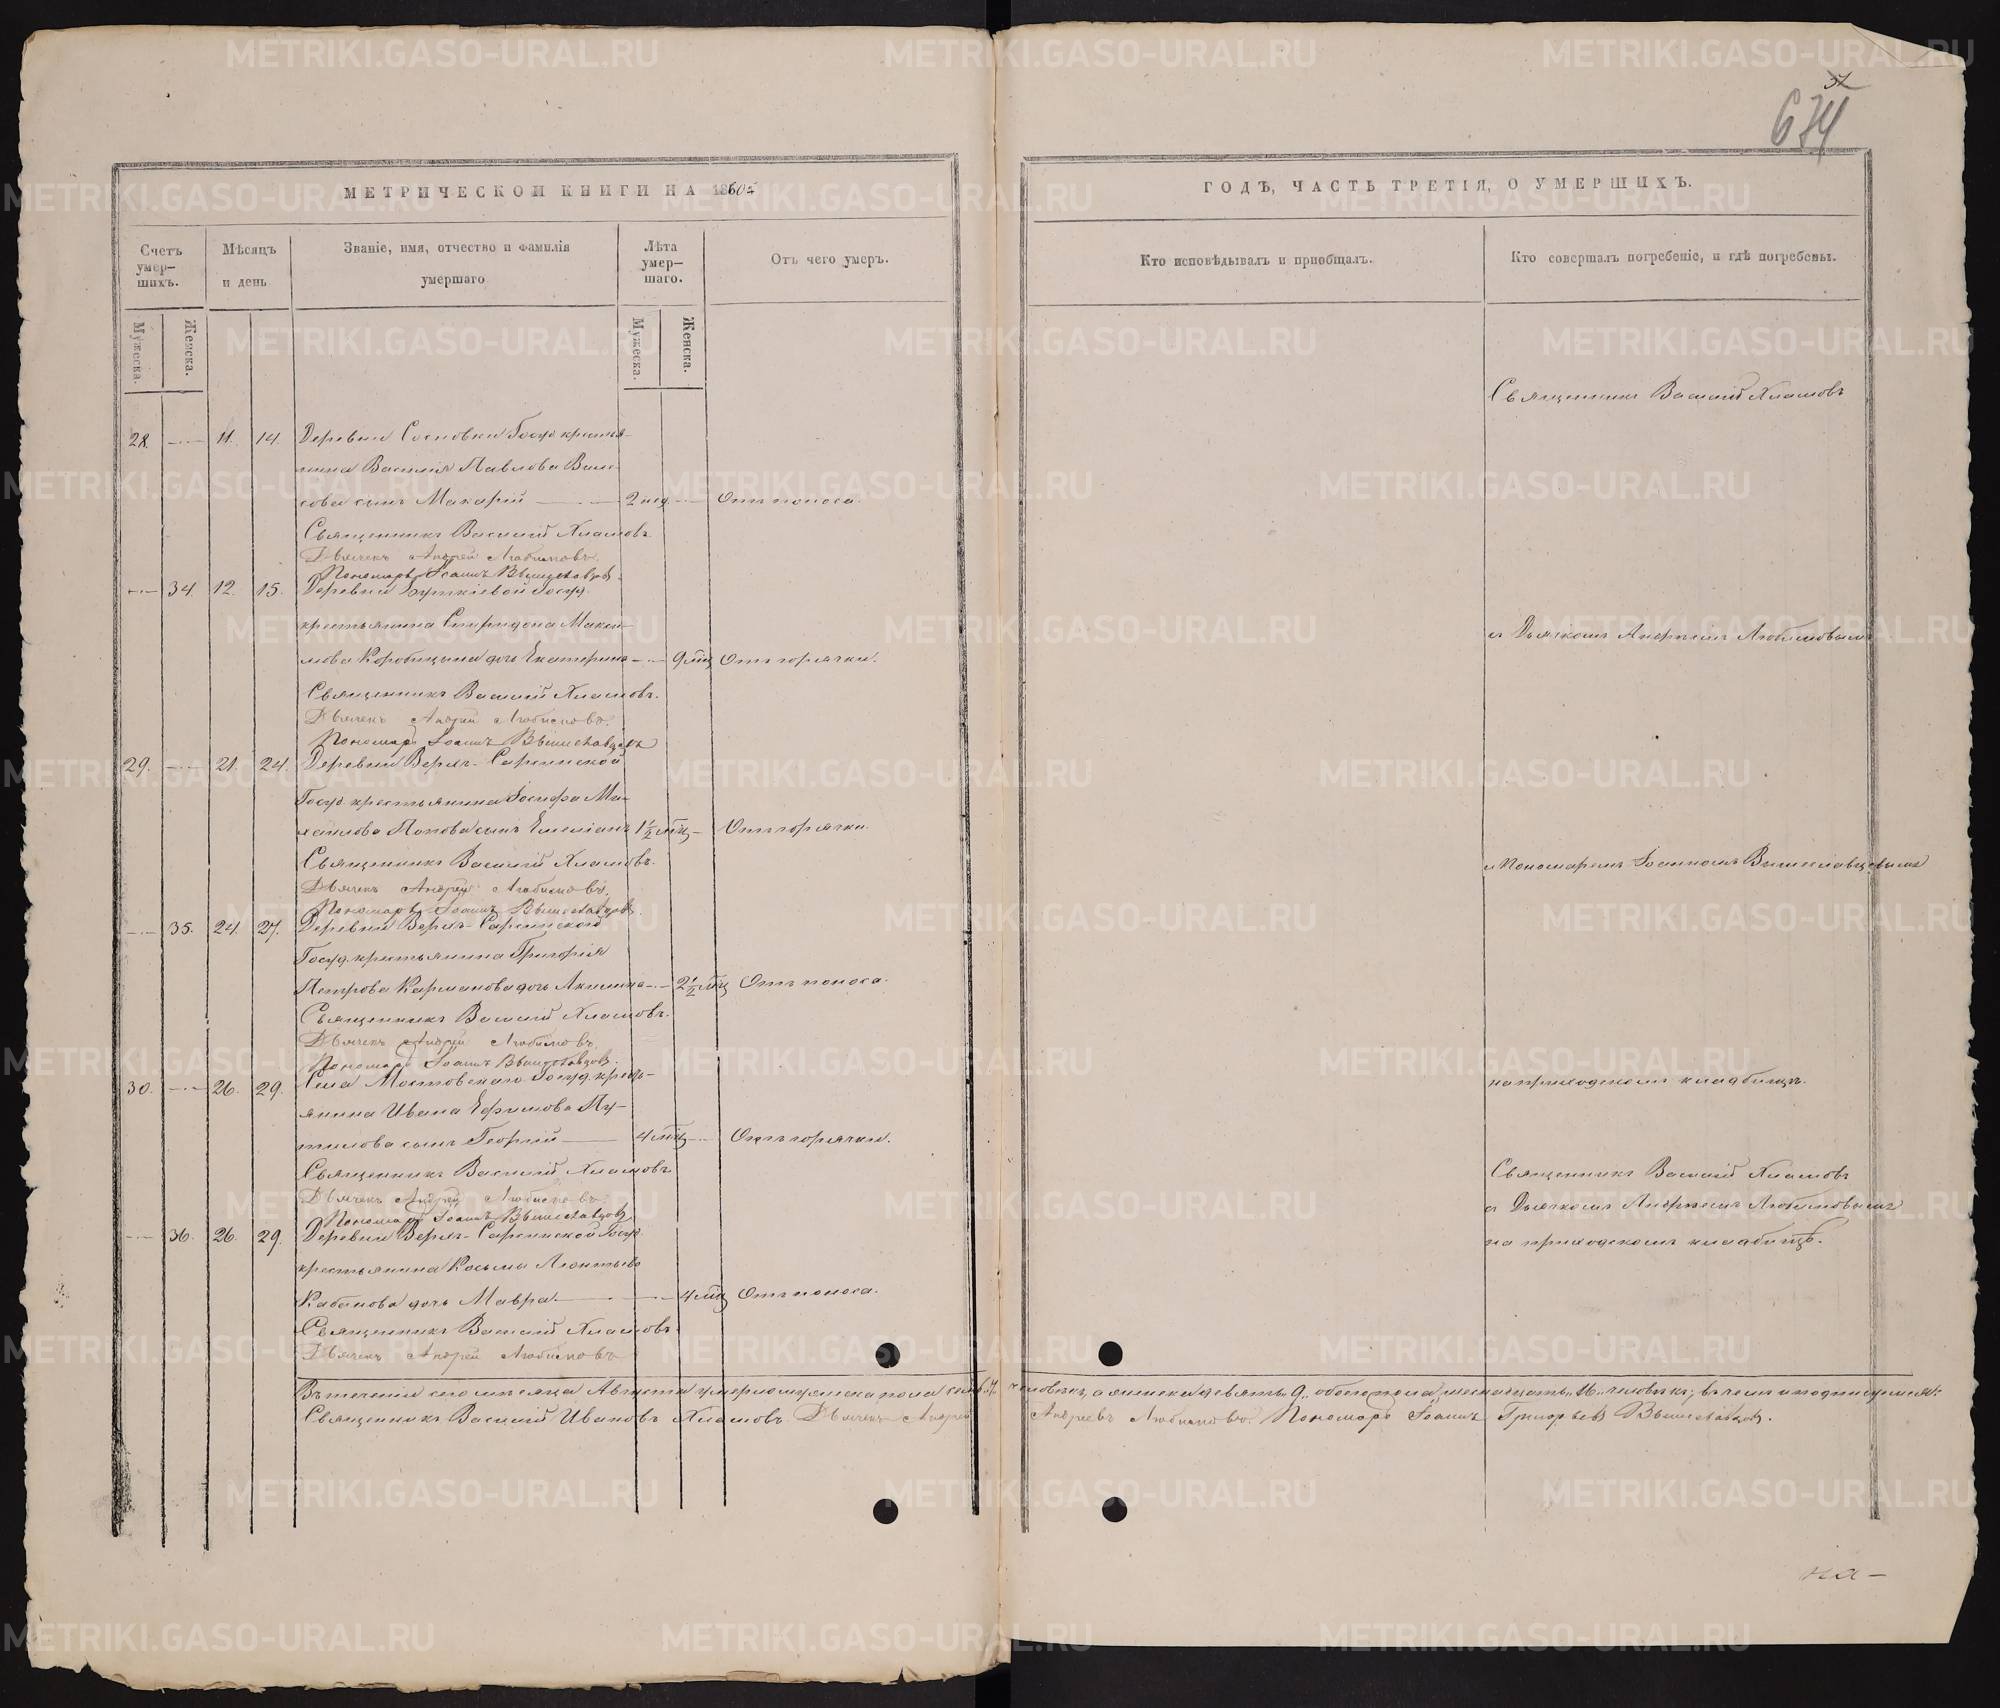 МЕТРИЧЕСКОЙ КНИГИ НА 1860й
Счетъ умер-
шихъ.
Мѣсяцъ
и день
Званіе, имя, отчество и фамилія
умершаго
Лѣта
умер-
шаго.
Отъ чего умеръ.
Мужеска.
Женска.
Мужеска.
Женска.
28. 11. 14. Деревни Сосновки Госуд. крестья-
нина Василія Павлова
сова сынъ Макарій 2 нед. Отъ поноса.
Священникъ Василій Хламовъ
Дьячекъ Андрей Любимовъ.
Пономарь Іоаннъ Вышеславцовъ.
34. 12. 15. Деревни Госуд.
крестьянина Спиридона Макси-
мова Коробицына дочь Екатерина 9 мцъ Отъ горячки.
Священникъ Василій Хламовъ.
Дьячекъ Андрей Любимовъ.
Пономарь Іоаннъ Вышеславцовъ
29. 21. 24. Деревни Верхъ-Сарсинской
Госуд. крестьянина Іосифа Ми-
хаилова Попова сынъ Емеліанъ 1 1/2 мцъ Отъ горячки.
Священникъ Василій Хламовъ.
Дьячекъ Андрей Любимовъ.
Пономарь Іоаннъ Вышеславцовъ.
35. 24. 27. Деревни Верхъ-Сарсинской
Госуд. крестьянина Григорія
Петрова Карманова дочь Акилина 2 1/2 мцъ Отъ поноса.
Священникъ Василій Хламовъ.
Дьячекъ Андрей Любимовъ.
Пономарь Іоаннъ Вышеславцовъ.
30. 26. 29. Села Мостовскаго Госуд. кресть-
янина Ивана Ефимова Пу-
тилова сынъ Георгій 4 мцъ Отъ горячки.
Священникъ Василій Хламовъ
Дьячекъ Андрей Любимовъ.
Пономарь Іоаннъ Вышеславцовъ.
36. 26. 29. Деревни Верхъ-Сарсинской Госуд.
крестьянина Косьмы Леонтьева
Кабанова дочь Мавра. 4 мцъ Отъ поноса.
Священникъ Василій Хламовъ
Дьячекъ Андрей Любимовъ
Въ теченіи сего мѣсяца Августа умерло мужеска пола семь 7.
Священникъ Василій Ивановъ Хламовъ. Дьячекъ Андрей
674
ГОДЪ, ЧАСТЬ ТРЕТІЯ, О УМЕРШИХЪ.
Кто исповѣдывалъ и пріобщалъ.
Кто совершалъ погребеніе, и гдѣ погребены.
Священникъ Василій Хламовъ
съ Дьячкомъ Андреемъ Любимовымъ
и Пономаремъ Іоанномъ Вышеславцовымъ
на приходскомъ кладбищѣ.
Священникъ Василій Хламовъ
съ Дьячкомъ Андреемъ Любимовымъ
на приходскомъ кладбищѣ.
человѣкъ, а женска девять „9„ обоего пола шестнадцать „16„ человѣкъ; въ чемъ и подписуемся:
Андреевъ Любимовъ. Пономарь Іоаннъ Григорьевъ Вышеславцовъ.
на-